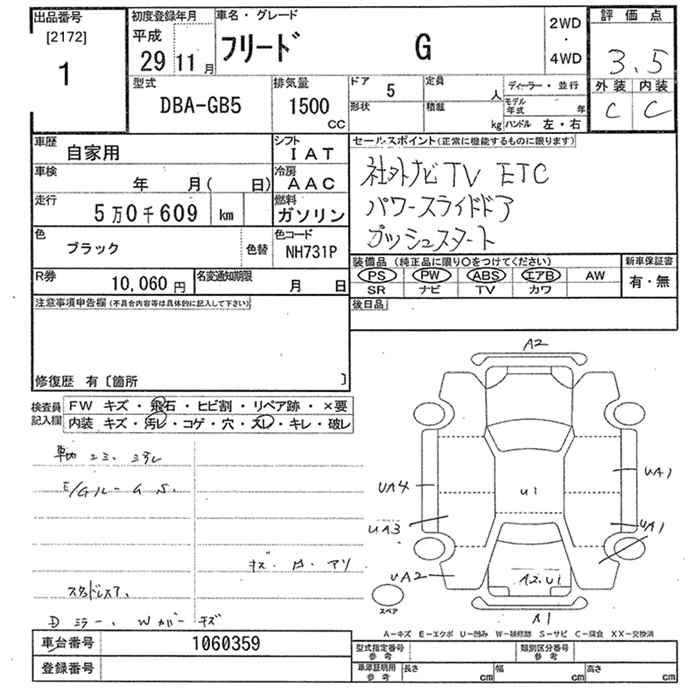 出品番号
[2172]
1
初度登録年月
平成
29 11 月
車名・グレード
フリード G
2WD
・
4WD
評価点
3.5
外装 内装
C C
型式
DBA-GB5
排気量
1500
CC
ドア
5
形状
定員
人
積載
kg
ディーラー・並行
モデル年式 年
ハンドル 左・右
車歴
自家用
シフト
IAT
車検
年 月( 日)
冷房
AAC
走行
5万0千609 km
燃料
ガソリン
色
ブラック
色替
色コード
NH731P
R券
10,060 円
名変通知期限
月 日
セールスポイント(正常に機能するものに限ります)
社外ナビ TV ETC
パワースライドドア
プッシュスタート
装備品 (純正品に限り○をつけてください)
PS PW ABS エアB AW
SR ナビ TV カワ
新車保証書
有・無
後日品
注意事項申告欄(不具合内容等は具体的に記入して下さい)
修復歴 有〔箇所 〕
検査員記入欄
FW キズ・飛石・ヒビ割・リペア跡・×要
内装 キズ・汚レ・コゲ・穴・スレ・キレ・破レ
キズ・凹・アリ
スタッドレス
Dミラー、Wカバーキズ
A2
UA4
UA1
U1
UA3
UA1
UA2
A2.U1
A1
スペア
A-キズ E-エクボ U-凹み W-補修跡 S-サビ C-腐食 XX-交換済
車台番号
1060359
登録番号
型式指定番号
参考
類別区分番号
参考
車庫証明用
参考
長さ cm
幅 cm
高さ cm